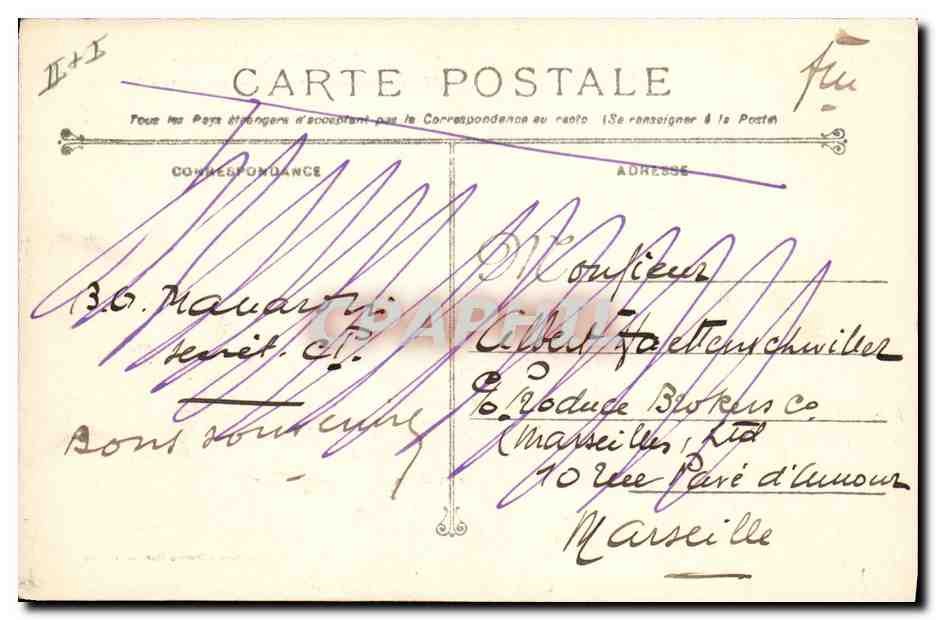 II + I
CARTE POSTALE
Tous les Pays étrangers n'acceptent pas la Correspondance au recto (Se renseigner à la Poste)
CORRESPONDANCE
ADRESSE
Monsieur
Albert Haettenschwiller
c/o Produce Brokers Co
(Marseilles, Ltd
10 rue Pavé d'Amour
Marseille
B.G.
Bons
CPAPHIL